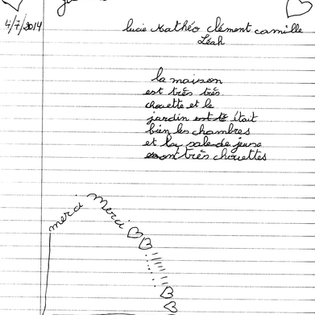 4/7/2014
lucie Mathéo clément camille
Léah
la maison
est très très
chouette et le
jardin est était
bien les chambres
et la sale de
sont très chouettes
merci Merci